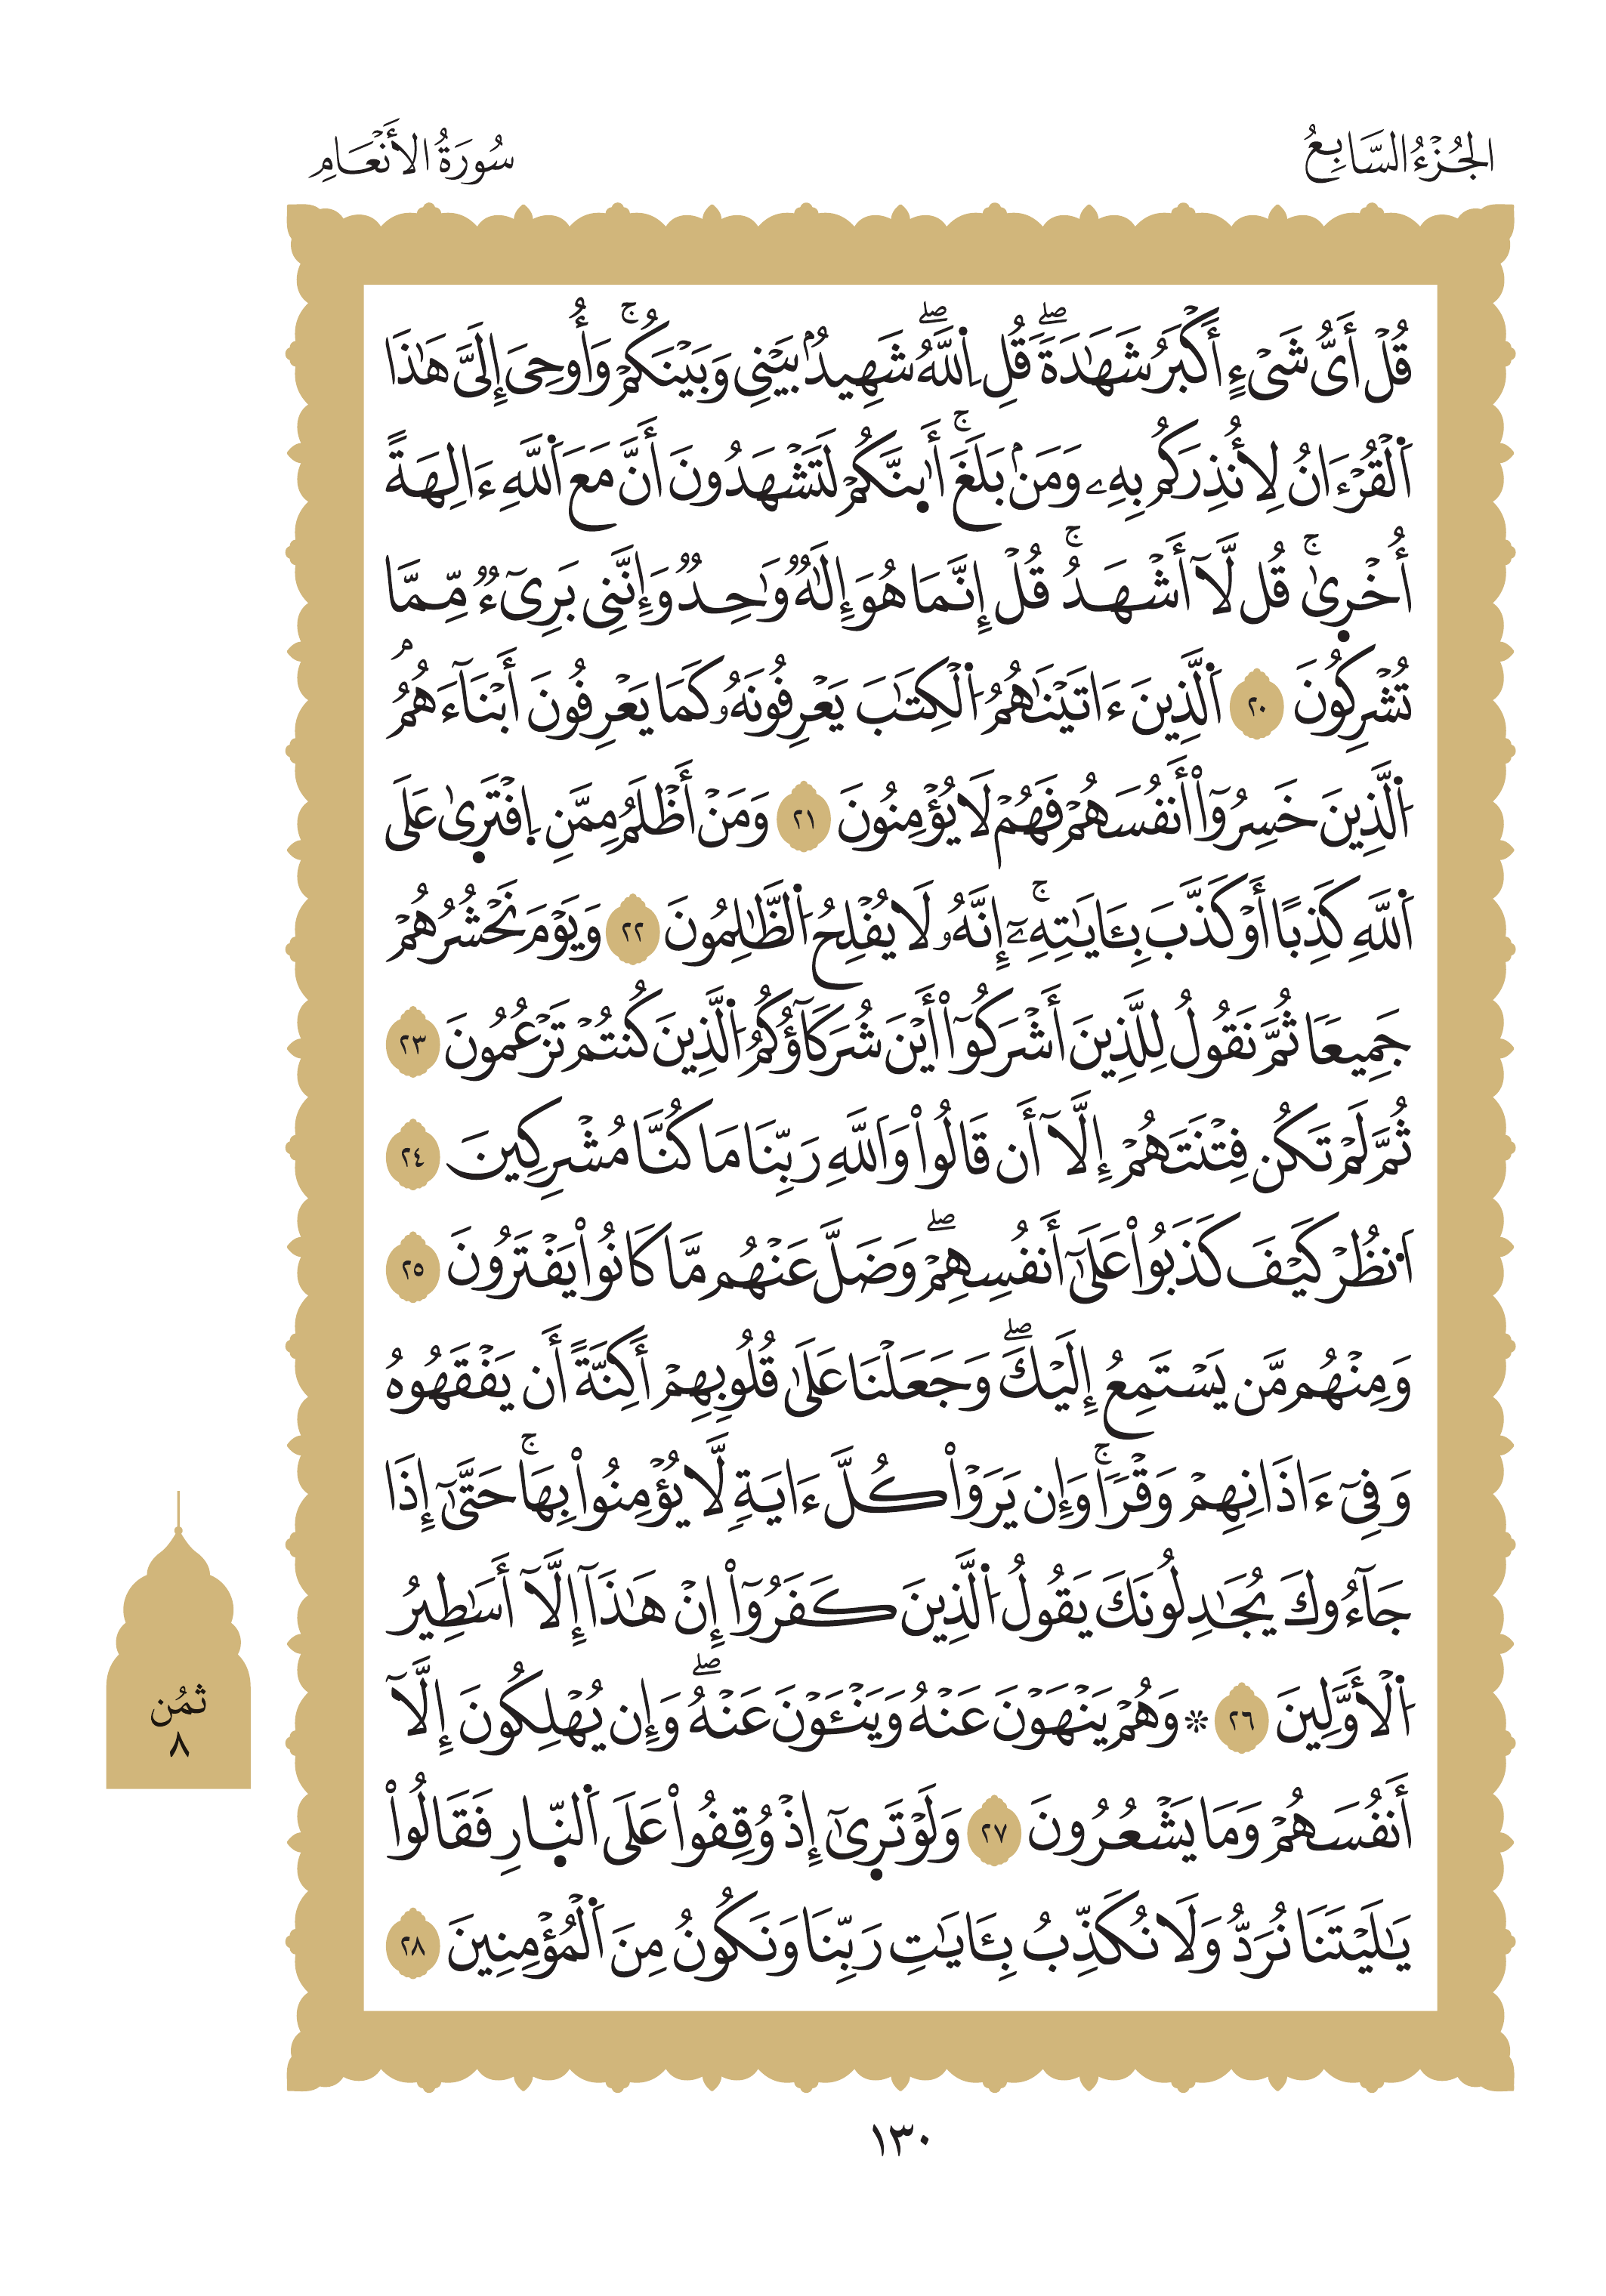 الجُزْءُ السَّابِعُ
سُورَةُ الأَنْعَامِ
قُلْ أَيُّ شَيْءٍ أَكْبَرُ شَهَٰدَةٗۖ قُلِ اِ۬للَّهُۖ شَهِيدُۢ بَيْنِي وَبَيْنَكُمْۚ وَأُوحِيَ إِلَيَّ هَٰذَا
اَ۬لْقُرْءَانُ لِأُنذِرَكُم بِهِۦ وَمَنۢ بَلَغَۚ أَى۪ٕنَّكُمْ لَتَشْهَدُونَ أَنَّ مَعَ اَ۬للَّهِ ءَالِهَةً
أُخْر۪يٰۚ قُل لَّآ أَشْهَدُۚ قُلْ إِنَّمَا هُوَ إِلَٰهٞ وَٰحِدٞ وَإِنَّنِي بَرِيٓءٞ مِّمَّا
تُشْرِكُونَ ٢٠ اَ۬لَّذِينَ ءَاتَيْنَٰهُمُ اُ۬لْكِتَٰبَ يَعْرِفُونَهُۥ كَمَا يَعْرِفُونَ أَبْنَآءَهُمُۘ
اُ۬لَّذِينَ خَسِرُوٓاْ أَنفُسَهُمْ فَهُمْ لَا يُؤْمِنُونَ ٢١ وَمَنْ أَظْلَمُ مِمَّنِ اِ۪فْتَر۪يٰ عَلَي
اَ۬للَّهِ كَذِبًا أَوْ كَذَّبَ بِـَٔايَٰتِهِۦٓۚ إِنَّهُۥ لَا يُفْلِحُ اُ۬لظَّٰلِمُونَ ٢٢ وَيَوْمَ نَحْشُرُهُمْ
جَمِيعٗا ثُمَّ نَقُولُ لِلَّذِينَ أَشْرَكُوٓاْ أَيْنَ شُرَكَآؤُكُمُ اُ۬لَّذِينَ كُنتُمْ تَزْعُمُونَ ٢٣
ثُمَّ لَمْ تَكُن فِتْنَتَهُمْ إِلَّآ أَن قَالُواْ وَاَ۬للَّهِ رَبِّنَا مَا كُنَّا مُشْرِكِينَ ٢٤
اَ۟نظُرْ كَيْفَ كَذَبُواْ عَلَيٰٓ أَنفُسِهِمْۖ وَضَلَّ عَنْهُم مَّا كَانُواْ يَفْتَرُونَ ٢٥
وَمِنْهُم مَّن يَسْتَمِعُ إِلَيْكَۖ وَجَعَلْنَا عَلَيٰ قُلُوبِهِمْ أَكِنَّةً أَن يَفْقَهُوهُ
وَفِيٓ ءَاذَانِهِمْ وَقْرٗاۚ وَإِن يَرَوْاْ كُلَّ ءَايَةٖ لَّا يُؤْمِنُواْ بِهَاۚ حَتَّيٰٓ إِذَا
جَآءُوكَ يُجَٰدِلُونَكَ يَقُولُ اُ۬لَّذِينَ كَفَرُوٓاْ إِنْ هَٰذَآ إِلَّآ أَسَٰطِيرُ
اُ۬لْأَوَّلِينَ ٢٦ ۞ وَهُمْ يَنْهَوْنَ عَنْهُ وَيَنْـَٔوْنَ عَنْهُۖ وَإِن يُهْلِكُونَ إِلَّآ
أَنفُسَهُمْ وَمَا يَشْعُرُونَ ٢٧ وَلَوْ تَر۪يٰٓ إِذْ وُقِفُواْ عَلَي اَ۬لنّ۪ارِ فَقَالُواْ
يَٰلَيْتَنَا نُرَدُّ وَلَا نُكَذِّبُ بِـَٔايَٰتِ رَبِّنَا وَنَكُونُ مِنَ اَ۬لْمُؤْمِنِينَ ٢٨
ثمُن
٨
١٣٠